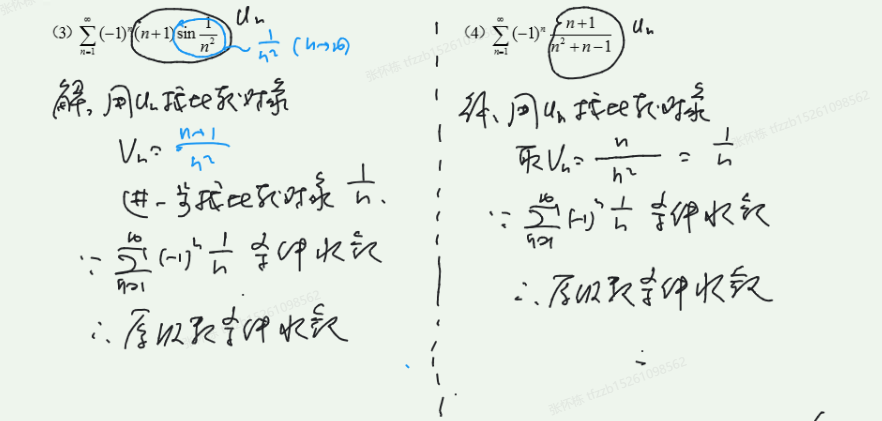 (3) $\sum_{n=1}^{\infty}(-1)^n(n+1)\sin\frac{1}{n^2}$ $U_n$
$\sim \frac{1}{n^2}$ (n→∞)
解、用Un找比较对象
$V_n = \frac{n+1}{n^2}$
(进一步)找比较对象 $\frac{1}{n}$.
∵ $\sum_{n=1}^{\infty}(-1)^n\frac{1}{n}$ 条件收敛
∴ 原级数条件收敛
(4) $\sum_{n=1}^{\infty}(-1)^n\frac{n+1}{n^2+n-1}$ $U_n$
解、用Un找比较对象
取 $V_n = \frac{n}{n^2} = \frac{1}{n}$
∵ $\sum_{n=1}^{\infty}(-1)^n\frac{1}{n}$ 条件收敛
∴ 原级数条件收敛
张怀栋 tfzzb15261098562